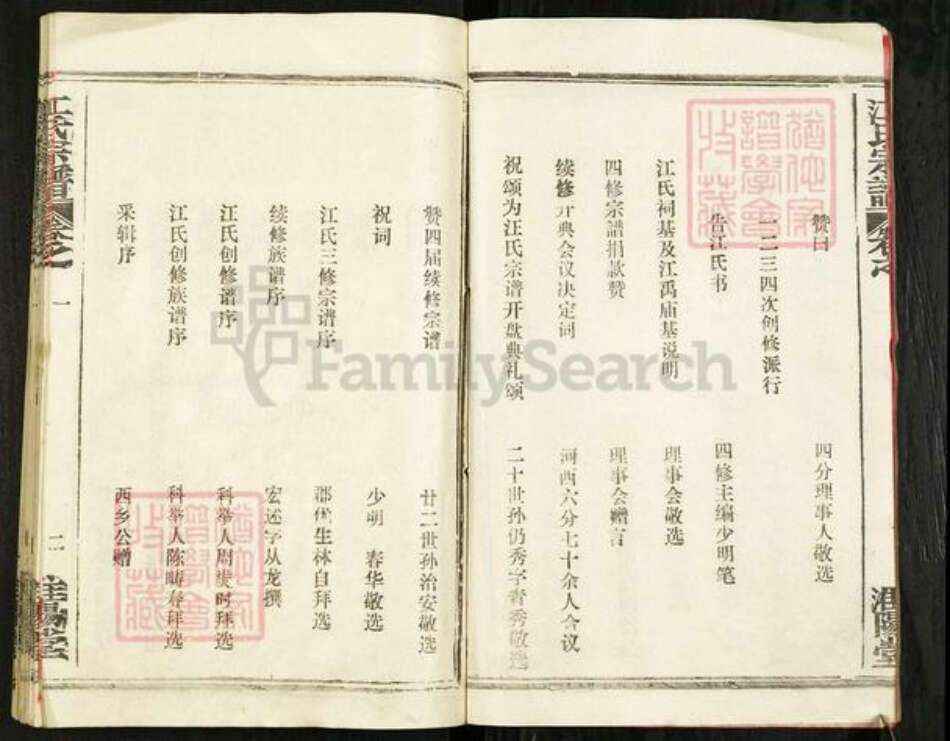 江氏宗譜
卷之一
淮陽堂
赞曰 四分理事人敬选
一二三四次创修派行
告江氏书 四修主编少明笔
江氏祠基及江禹庙基说明 理事会敬选
四修宗譜捐款赞 理事会赠言
续修开典会议决定词 河西六分七十余人合议
祝颂为汪氏宗谱开盘典礼颂 二十世孙仍秀字青秀敬选
赞四届续修宗谱 廿二世孙治安敬选
祝词 少明 春华敬选
江氏三修宗谱序 郡优生林自拜选
续修族谱序 宏述字从龙撰
江氏创修谱序 科举人周 时拜选
江氏创修族谱序 科举人陈畴寿拜选
采辑序 西乡公赠
江氏宗譜
卷之一
一
二
淮陽堂
FamilySearch
猶他家譜學會收藏
猶他家譜學會收藏